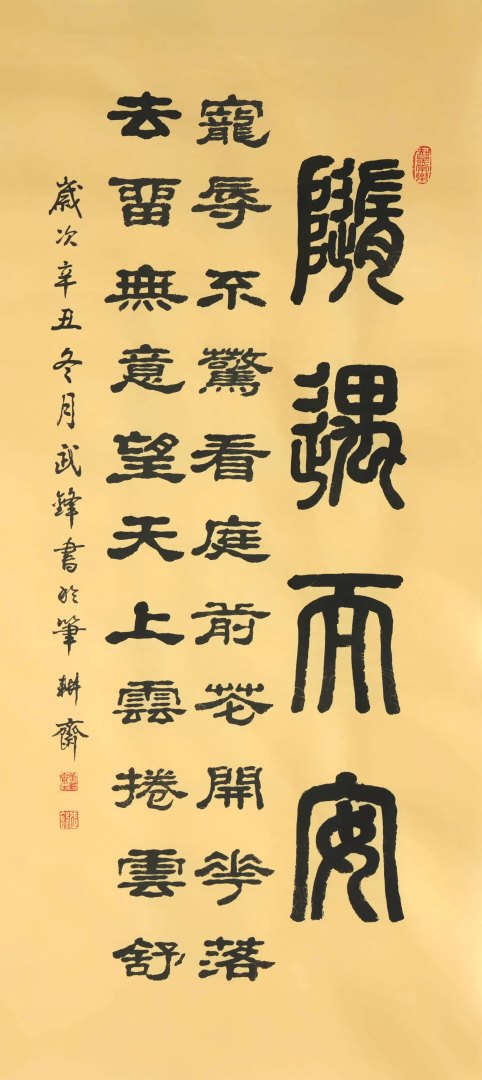 隨遇而安
寵辱不驚看庭前花開花落
去留無意望天上雲捲雲舒
歲次辛丑冬月武鋒書於筆耕齋